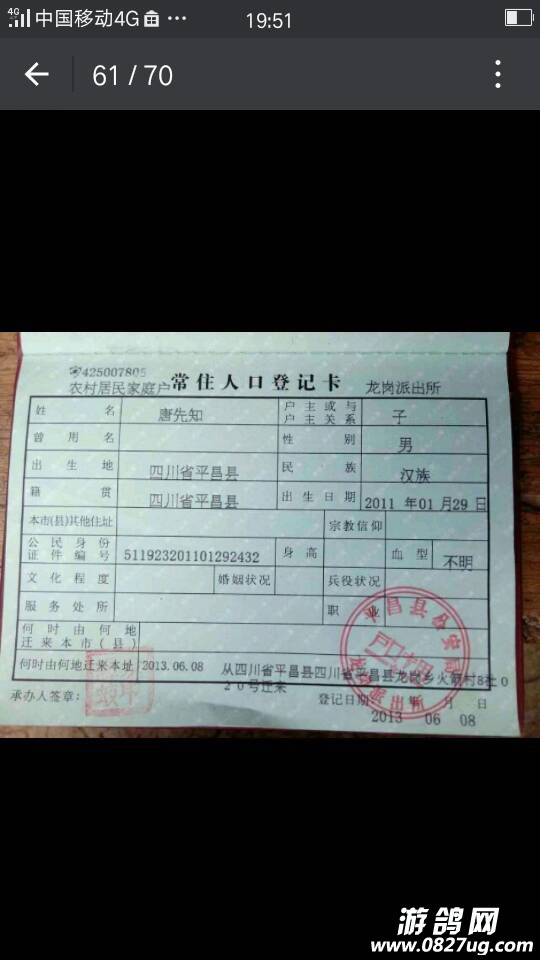 4G 中国移动4G ··· 19:51
61 / 70
425007805
农村居民家庭户 常住人口登记卡 龙岗派出所
姓名 唐先知 户主或与户主关系 子
曾用名 性别 男
出生地 四川省平昌县 民族 汉族
籍贯 四川省平昌县 出生日期 2011 年01 月29 日
本市(县)其他住址 宗教信仰
公民身份证件编号 511923201101292432 身高 血型 不明
文化程度 婚姻状况 兵役状况
服务处所 职业
何时由何地迁来本市(县)
何时由何地迁来本址 2013.06.08 从四川省平昌县四川省平昌县龙岗乡火箭村8社0
20号迁来
承办人签章: 登记日期: 年 月 日
2013 06 08
平昌县公安局
户口专用
派出所
游鸽网
www.0827ug.com